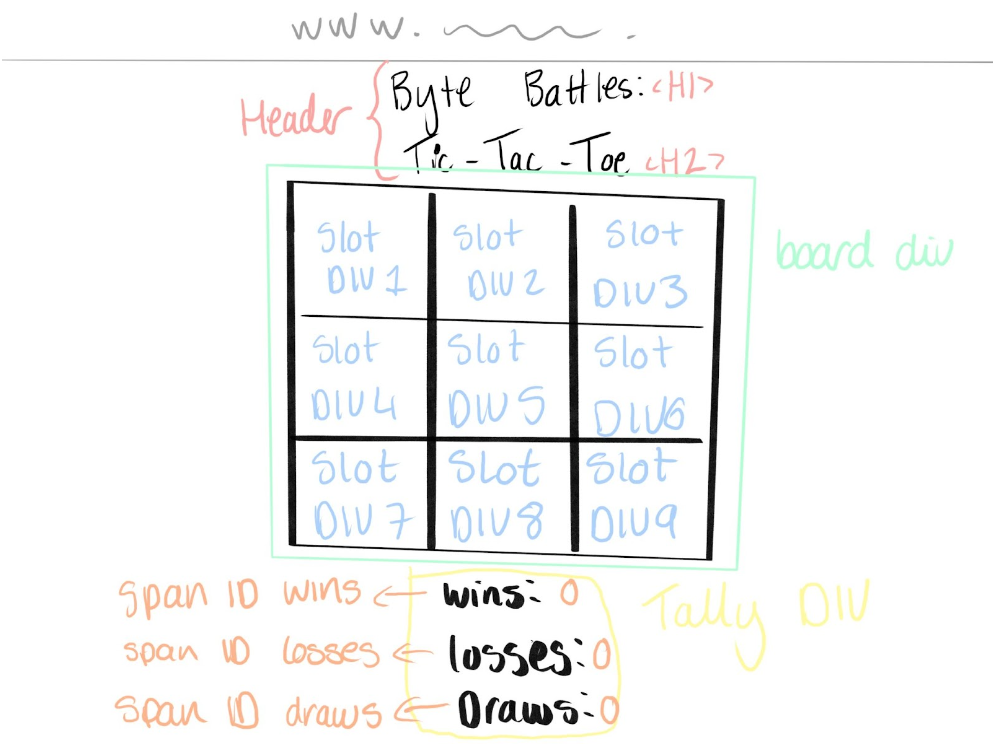 www.
Header
Byte Battles: <H1>
Tic-Tac-Toe <H2>
board div
Slot DIV 1
Slot DIV 2
Slot DIV 3
Slot DIV 4
Slot DIV 5
Slot DIV 6
Slot DIV 7
Slot DIV 8
Slot DIV 9
Span ID wins ← wins: 0
span ID losses ← losses: 0
span ID draws ← Draws: 0
Tally DIV